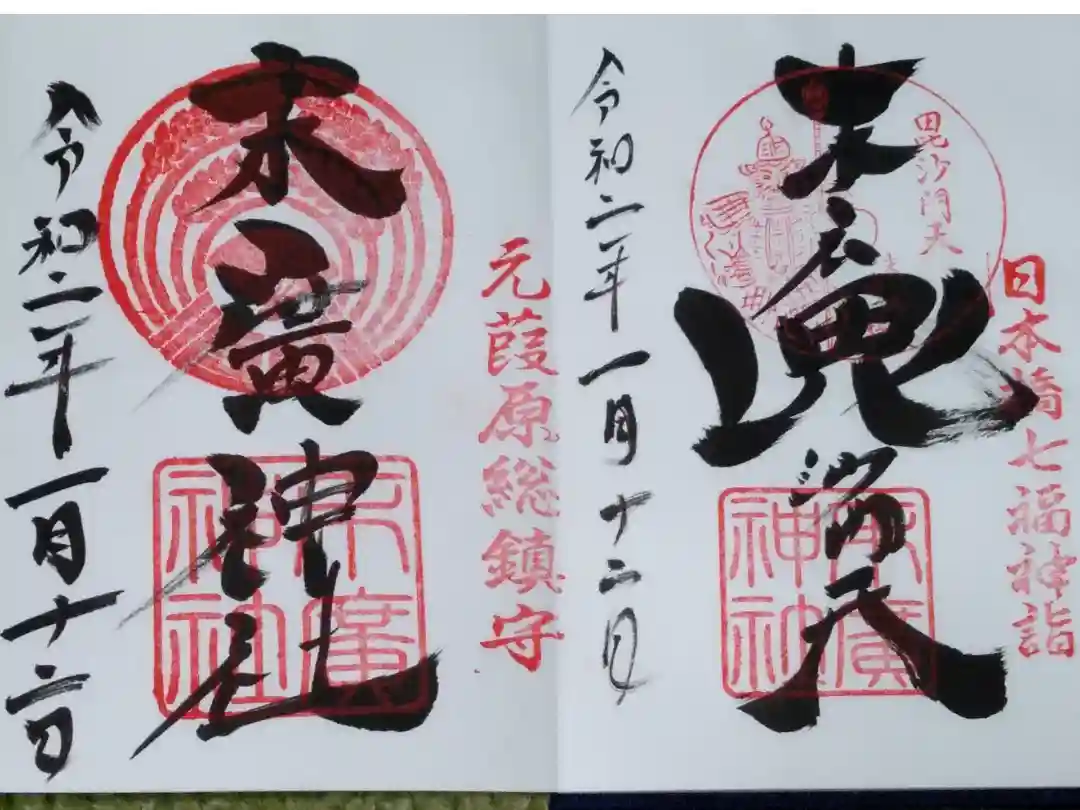 日本橋七福神詣
毘沙門天
末広毘沙門天
末廣
神社
令和二年一月十二日
元葭原総鎮守
末廣神社
末廣
神社
令和二年一月十二日